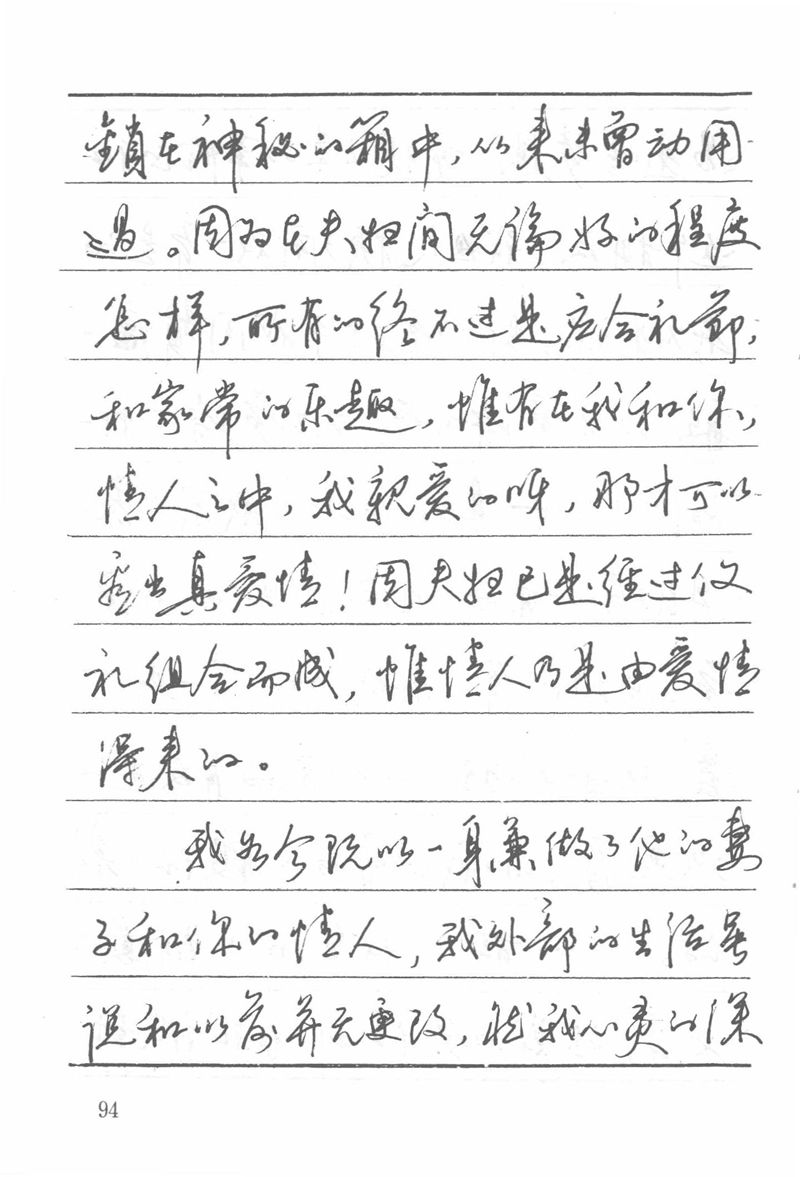 锁在神秘的箱中，从来未曾动用
过。因为在夫妇间无论好的程度
怎样，所有的终不过是应合礼节，
和家常的乐趣，惟有在我和你，
情人之中，我亲爱的呀，那才可以
看出真爱情！因夫妇已是经过仪
礼组合而成，惟情人乃是由爱情
得来的。
我如今既以一身兼做了他的妻
子和你的情人，我外部的生活虽
说和以前并无更改，然我心灵的深
94